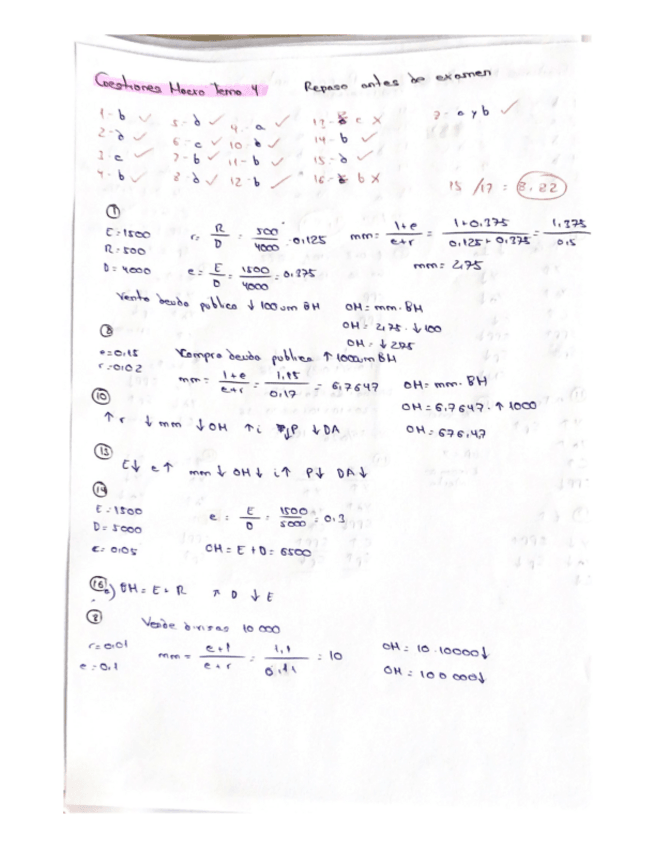 Cuestiones Macro Tema 4 Repaso antes de examen
1- b ✓ 5- d ✓ 9- a ✓ 13- c X 7- a y b ✓
2- d ✓ 6- c ✓ 10- d ✓ 14- b ✓
3- c ✓ 7- b ✓ 11- b ✓ 15- d ✓
4- b ✓ 8- d ✓ 12- b ✓ 16- b X 15/17 = 8,82
①
E = 1500 r = R/D = 500/4000 = 0,125 mm = 1+e/e+r = 1+0,375/0,125+0,375 = 1,375/0,5
R = 500
D = 4000 e = E/D = 1500/4000 = 0,375 mm = 2,75
Venta deuda publica ↓ 100um BH OH = mm · BH
OH = 2,75 · ↓100
OH = ↓ 275
⑧
e = 0,15 Compra deuda publica ↑ 1000um BH
r = 0,02 mm = 1+e/e+r = 1,15/0,17 = 6,7647 OH = mm · BH
⑩ OH = 6,7647 · ↑ 1000
↑ r ↓ mm ↓ OH ↑ i ↓P ↓ DA OH = 6764,7
E↓ e↑ mm↓ OH↓ i↑ P↓ DA↓
⑭
E = 1500 e = E/D = 1500/5000 = 0,3
D = 5000
OH = E + D = 6500
⑯ BH = E + R ↑ D ↓ E
Vende divisas 10 000
r = 0,01 mm = e+1/e+r = 1,1/0,11 = 10 OH = 10 · 10000↓
e = 0,1 OH = 100 000↓